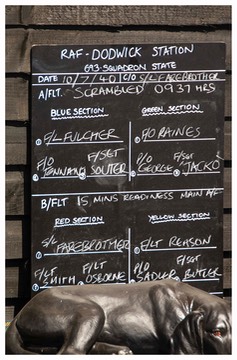 RAF-DODWICK STATION
693 SQUADRON STATE
DATE 10/7/40 C/O S/L FAREBROTHER
A/FLT. SCRAMBLED 0937 HRS
BLUE SECTION GREEN SECTION
F/L FULCHER F/O RAINES
F/O F/SGT P/O F/SGT
PENNANG SOUTER GEORGE "JACKO"
B/FLT 15 MINS READINESS MAIN A/F
RED SECTION YELLOW SECTION
S/L FAREBROTHER F/LT REASON
F/LT F/LT P/O F/SGT
SMITH OSBORNE SADLER BUTLER